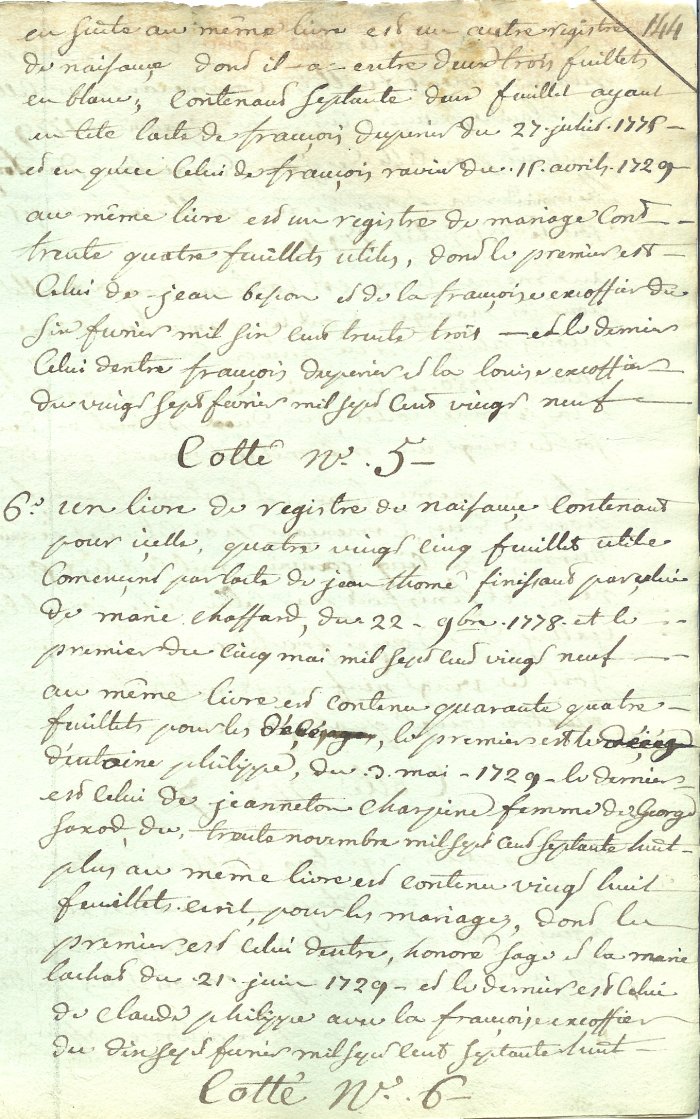 en suite au même livre est un autre registre 144
de naisançe dont il a entre deux trois fuillets
en blanc, contenant septante deux feuillet ayant
en tete l'acte de françois duperier du 27. juliet. 1775 -
et en queüe Celui de françois ravier du .15. avril. 1729
au même livre est un registre de mariage Cont -
trente quatre feüillets utiles, dont le premier est -
Celui de jean besson et de la françoise excoffier du
six fevrier mil six cent trente trois - et le dernier
Celui dentre françois duperier et la louise excoffier
du vingt sept fevrier mil sept Cent vingt neuf -
Cotté N.° 5 -
6.° un livre de registre de naisançe contenant
pour icelle, quatre vingt cinq feuillet utile
Començant par l'acte de jean thomé finissant par celui
de marie Chaffard, du 22 - 9bre. 1778. et le
premier du Cinq mai mil sept cent vingt neuf
au même livre est contenu quarante quatre -
feuillets pour les décès, le premier est le décèz
d'entoine philippe, du .3. mai - 1729 - le dernier
est Celui de jeanneton Charpine femme de George
Saxod, du, trente novembre mil sept cent septante huit -
plus au même livre est contenu vingt huit
feuillets ecrit, pour les mariages, dont le
premier est Celui dentre, honoré Sage et la marie
lachat du .21. juin 1729 - et le dernier est Celui
de Claude philippe avec la françoise excoffier
du dix sept fevrier mil sept cent septante huit -
Cotté N.° 6 -